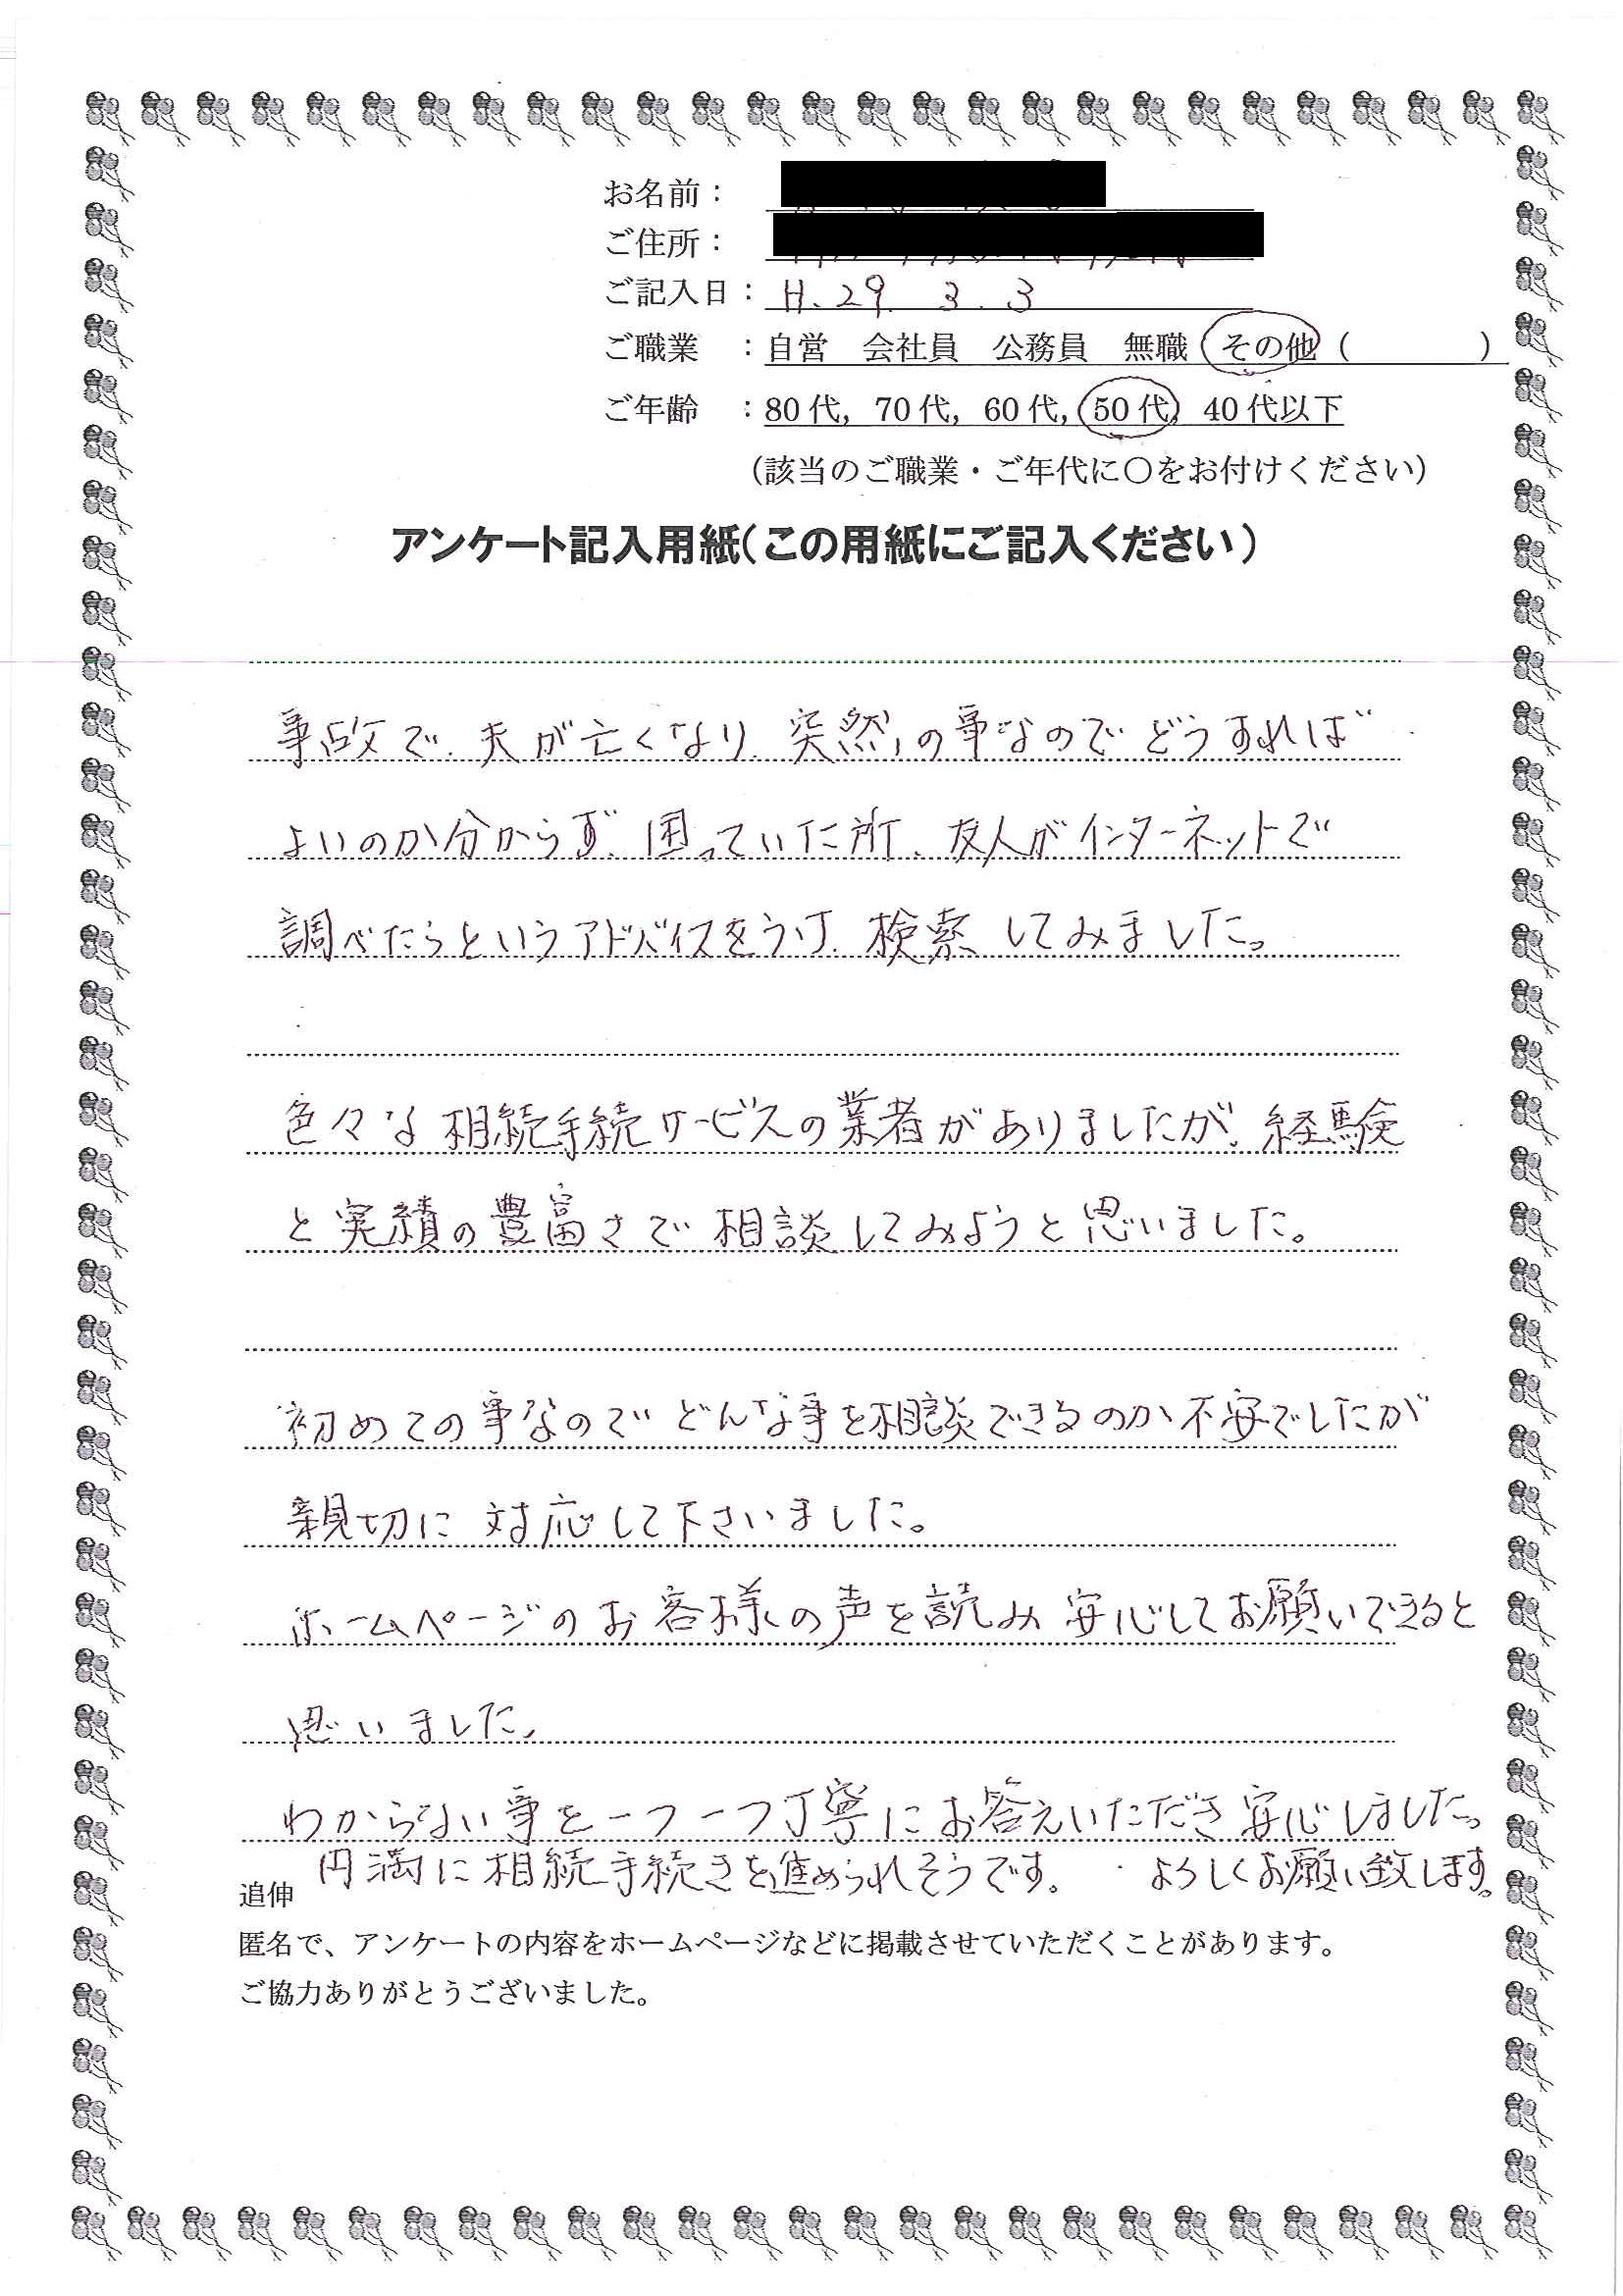 お名前：
ご住所：
ご記入日： H. 29. 3. 3
ご職業 ：自営 会社員 公務員 無職 その他（ ）
ご年齢 ：80代，70代，60代，50代，40代以下
（該当のご職業・ご年代に〇をお付けください）
アンケート記入用紙（この用紙にご記入ください）
事故で、夫が亡くなり、突然の事なのでどうすれば
よいのか分からず、困っていた所、友人がインターネットで
調べたらというアドバイスをうけ、検索してみました。
色々な相続手続サービスの業者がありましたが、経験
と実績の豊富さで相談してみようと思いました。
初めての事なのでどんな事を相談できるのか不安でしたが
親切に対応して下さいました。
ホームページのお客様の声を読み安心してお願いできると
思いました。
わからない事を一つ一つ丁寧にお答えいただき安心しました。
円満に相続手続きを進められそうです。 よろしくお願い致します。
追伸
匿名で、アンケートの内容をホームページなどに掲載させていただくことがあります。
ご協力ありがとうございました。